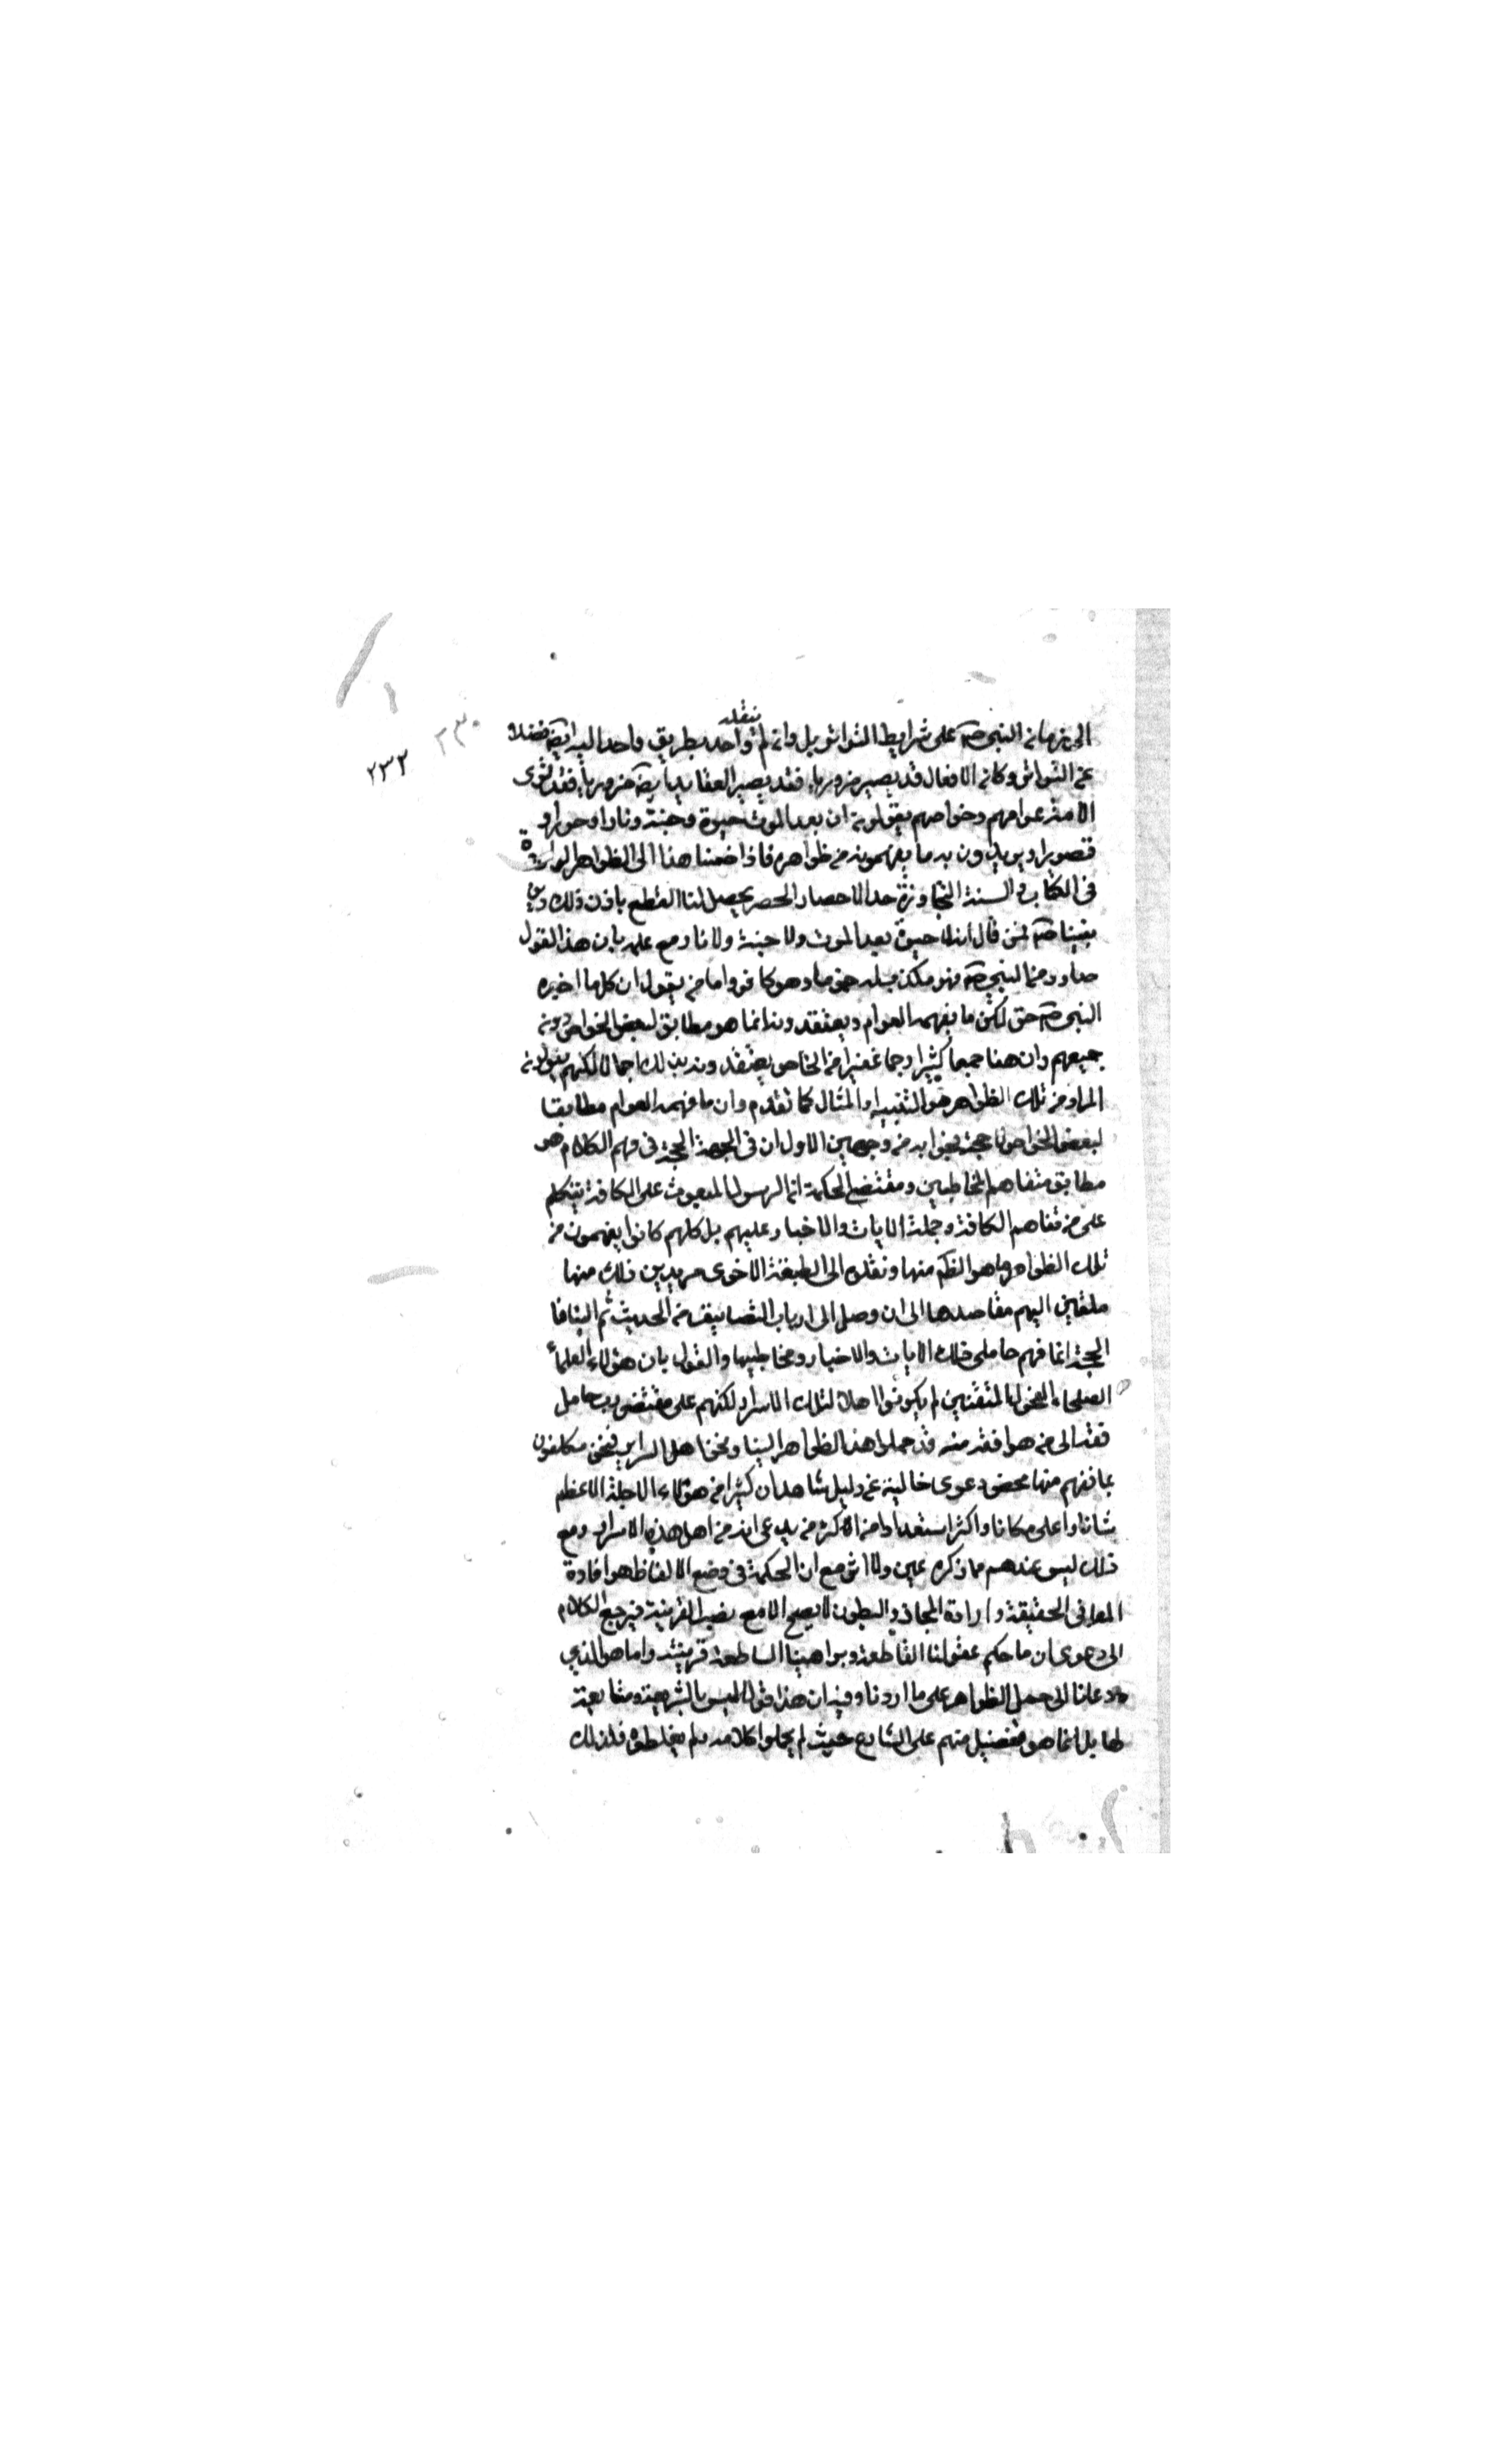 ينقله
الى زمان النبى صم على شرايط التواتر بل وان لم واحد بطريق واحد اليه ايضا فضلا
عن التواتر وكان الافعال قد يصير ضروريا فقد يصير العقايد ايضا ضروريا فقد نرى
الامة عوامهم وخواصهم يقولون ان بعد الموت حيوة وجنة ونارا وحورا و
قصورا ويريدون به ما يفهمونه من ظواهره فاذا ضممنا هذا الى الظواهر الواردة
فى الكتاب والسنة المتجاوزة حد الاحصار والحصر يحصل لنا القطع بان ذلك دين
نبينا صم فمن قال انه لا حيوة بعد الموت ولا جنة ولا نار مع علمه بان هذا القول
صادر من النبى صم فهو مكذب له جزما وهو كافر واما من يقول ان كلما اخبره
النبى صم حق لكن ما يفهمه العوام ويعتقدونه انما هو مطابق لبعض الخواص دون
جميعهم وان هنا جمعا كثيرا وجما غفيرا من الخاص يعتقدونه بذلك اجمالا لكنهم يقولون
المراد من تلك الظواهر هو التشبيه والمثال كما تقدم وان ما فهمه العوام مطابقا
لبعض الخواص لا حجة فيه فجوابه من وجهين الاول ان فى الحجة فى فهم الكلام هو
مطابق متفاهم المخاطبين ومقتضى الحكمة ان الرسول المبعوث على الكافة يتكلم
على متفاهم الكافة وجملة الايات والاخبار عليهم بل كلهم كانوا يفهمون من
تلك الظواهر ما هو الظ منها ونقلوه الى الطبقة الاخرى مريدين ذلك منها
ملقين اليهم مقاصدها الى ان وصل الى ارباب التصانيف من الحديث ثم الينا فا
لحجة انما فهم حاملى ذلك الايات والاخبار ومخاطبيها والقول بان هؤلاء العلماء
الصلحاء الفحول المتقنين لم يكونوا اهلا لتلك الاسرار لكنهم على مقتضى رب حامل
فقه الى من هو افقه منه قد حملوا هذه الظواهر الينا ونحن اهل السراير فنحن مكلفون
بما نفهم منها محض دعوى خالية عن دليل شاهد ان كثيرا من هؤلاء الاجلة الاعظم
شانا واعلى مكانا واكثر استعدادا من اكثر من يدعى انه من اهل هذه الاسرار ومع
ذلك ليس عندهم مما ذكره عين ولا اثر مع ان الحكمة فى وضع الالفاظ هو افادة
المعانى الحقيقة وارادة المجاز والبطون لا يصح الا مع نصب القرينة فيرجع الكلام
الى دعوى ان ما حكم عقولنا القاطعة وبراهيننا الساطعة قرينة واما هو الذى
دعانا الى حمل الظواهر على ما اردنا وفيه ان هذا قول ليس بالشريعة ومتابعة
لها بل انما هو تفضيل منهم على الشارع حيث لم يحملوا كلامه ولم يغلطوه فلذلك
٢٣٠
٢٣٢